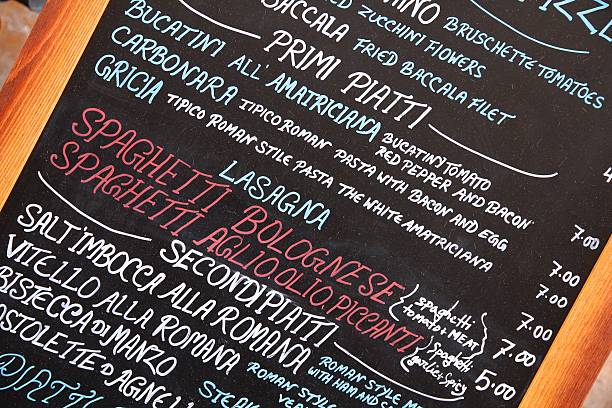 PIZZE
ANO BRUSCHETTE TOMATOES
FRIED ZUCCHINI FLOWERS
BACCALA FRIED BACCALA FILET
PRIMI PIATTI
BUCATINI ALL' AMATRICIANA BUCATINI TOMATO RED PEPPER AND BACON 7.00
CARBONARA TIPICO ROMAN PASTA WITH BACON AND EGG 7.00
GRICIA TIPICO ROMAN STILE PASTA THE WHITE AMATRICIANA 7.00
LASAGNA 7.00
SPAGHETTI BOLOGNESE (spaghetti tomato & MEAT) 7.00
SPAGHETTI AGLIO OLIO PICCANTI (spaghetti garlic & spicy) 5.00
SECONDI PIATTI
SALT'IMBOCCA ALLA ROMANA ROMAN STYLE ME
WITH HAM AND C
VITELLO ALLA ROMANA ROMAN STY
VE
BISTECCA DI MANZO STEAK
OSTOLETTE D'AGNELL
PIATTI